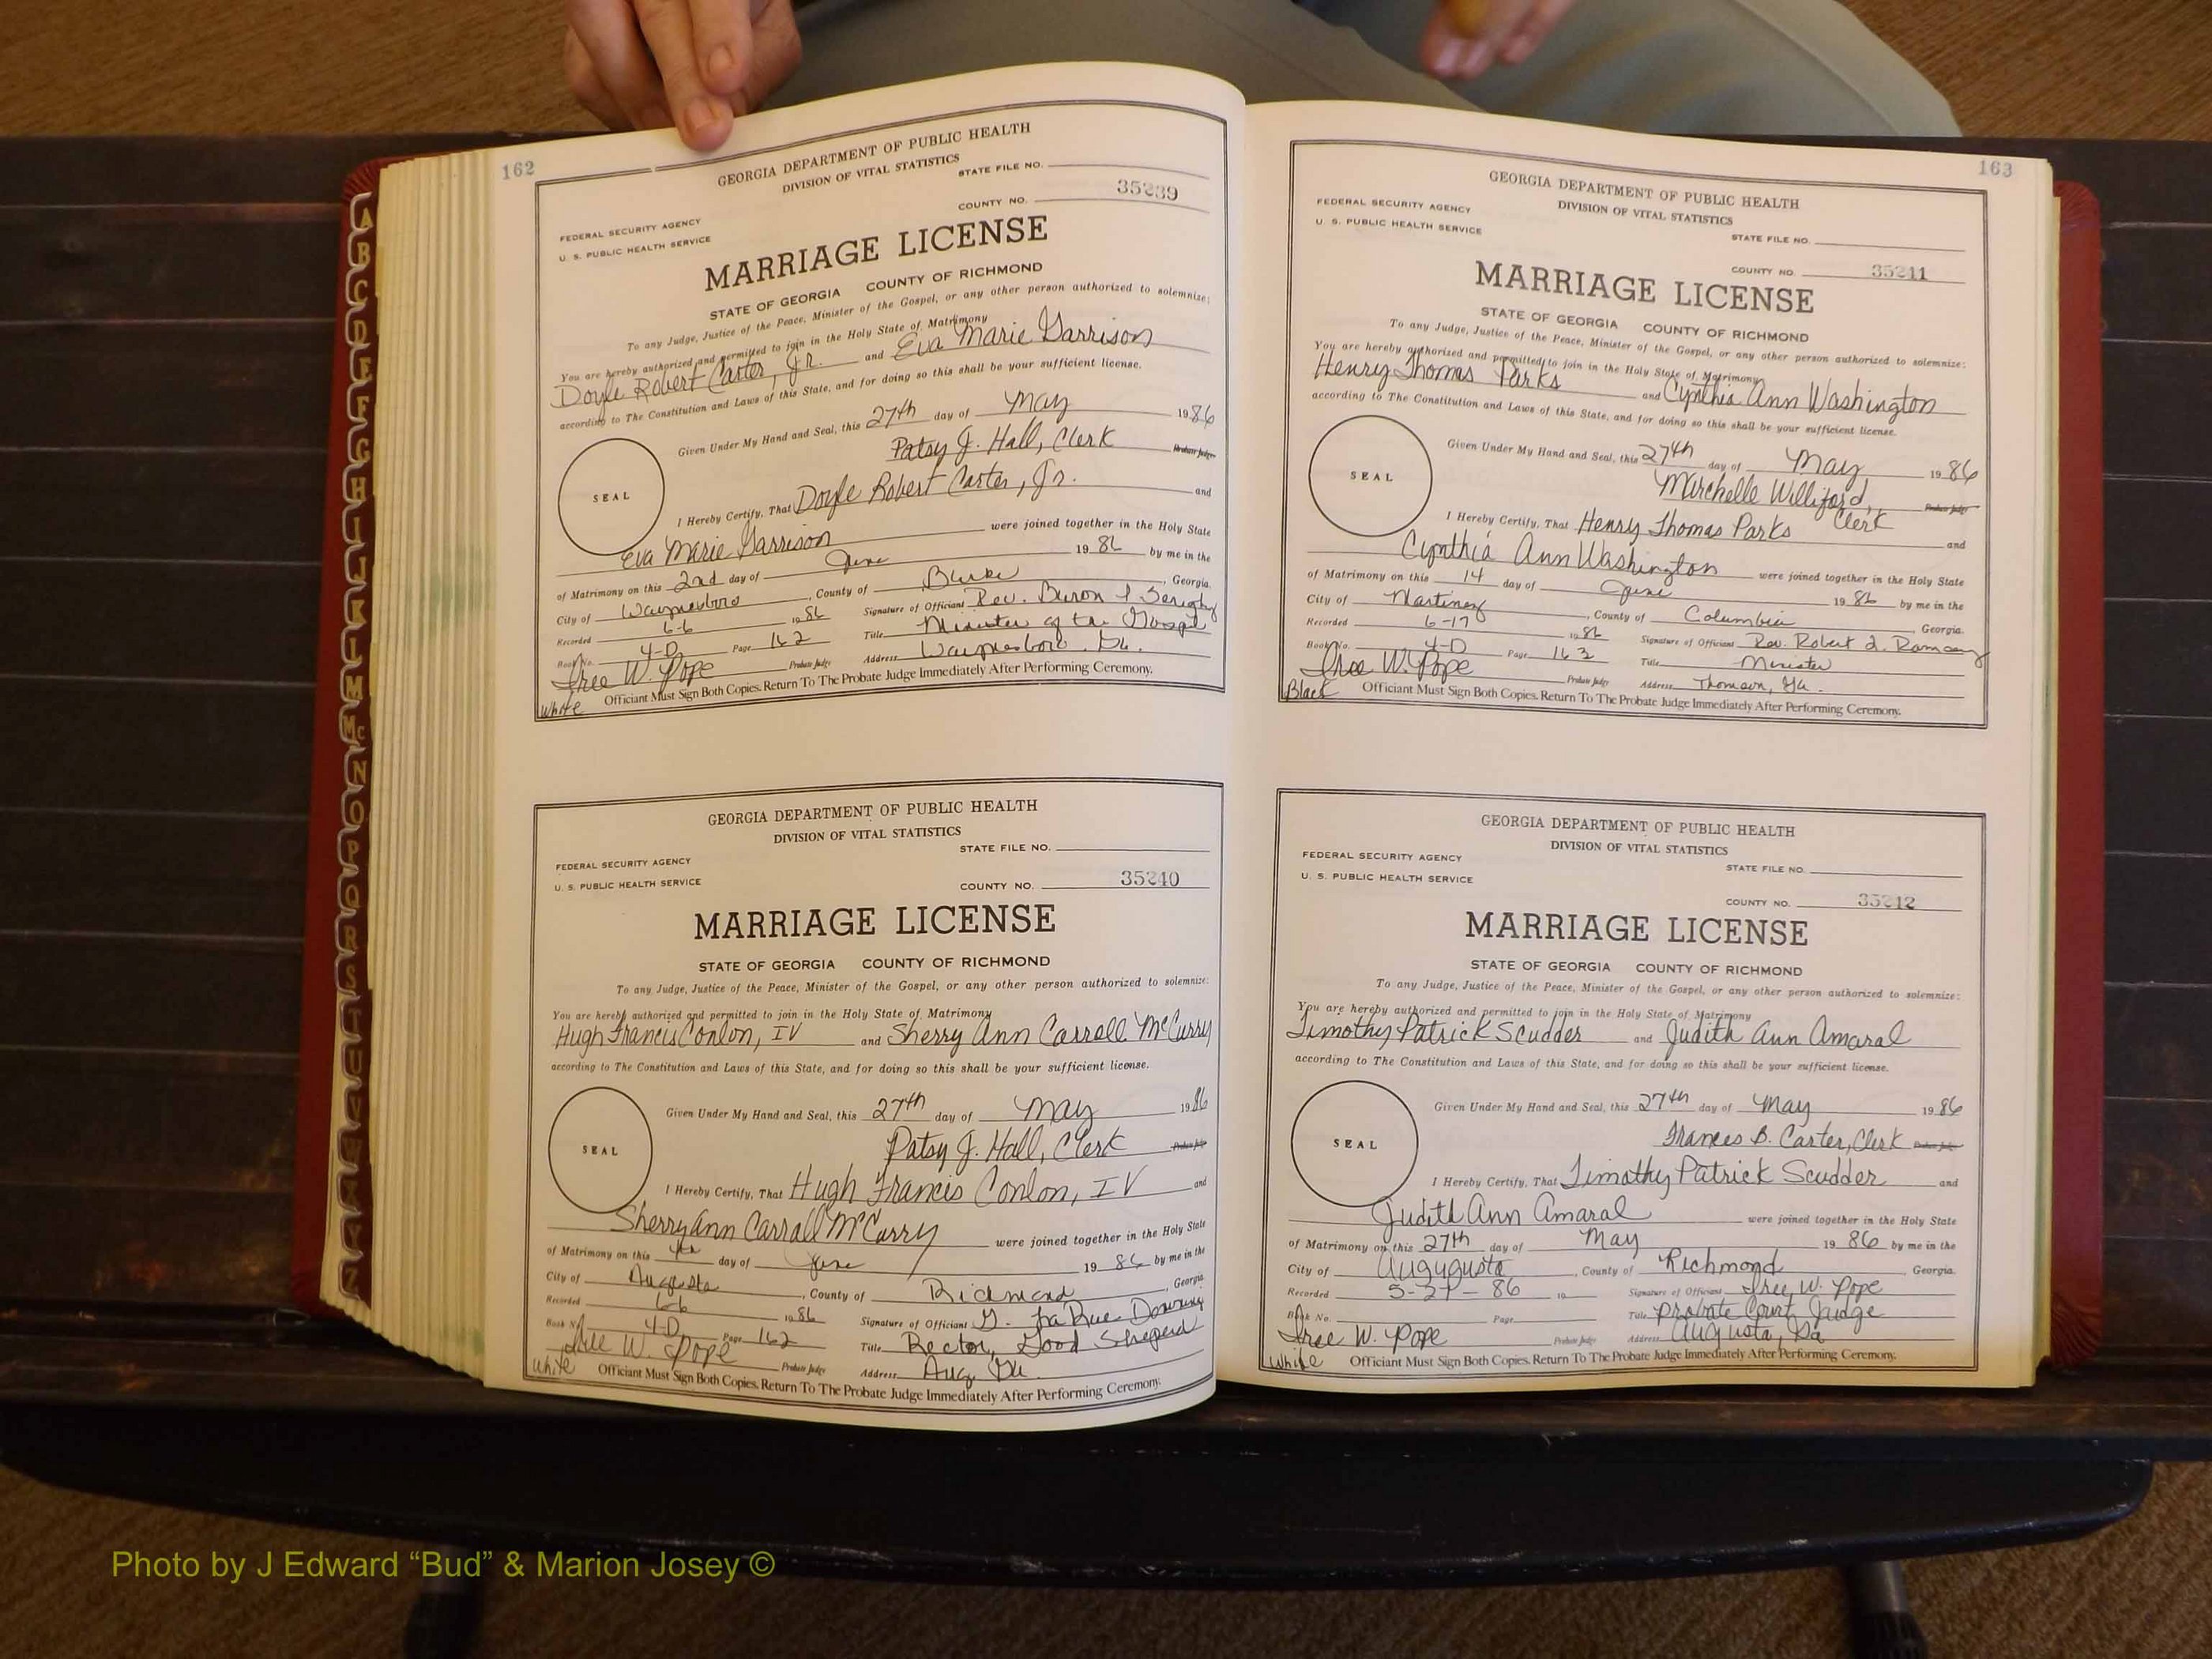 162
GEORGIA DEPARTMENT OF PUBLIC HEALTH
DIVISION OF VITAL STATISTICS
STATE FILE NO.
35239
COUNTY NO.
FEDERAL SECURITY AGENCY
U. S. PUBLIC HEALTH SERVICE
MARRIAGE LICENSE
STATE OF GEORGIA COUNTY OF RICHMOND
To any Judge, Justice of the Peace, Minister of the Gospel, or any other person authorized to solemnize:
You are hereby authorized and permitted to join in the Holy State of Matrimony
Doyle Robert Carter, Jr. and Eva Marie Garrison
according to The Constitution and Laws of this State, and for doing so this shall be your sufficient license.
Given Under My Hand and Seal, this 27th day of May 1986
Patsy J. Hall, Clerk Probate Judge
SEAL
I Hereby Certify, That Doyle Robert Carter, Jr. and
Eva Marie Garrison were joined together in the Holy State
of Matrimony on this 2nd day of June 1986 by me in the
City of Waynesboro, County of Burke, Georgia.
Recorded 6-6 1986 Signature of Officiant Rev. Buron
Book No. 4-D Page 162 Title Minister of the Gospel
Iree W. Pope Probate Judge Address Waynesboro, Ga.
White Officiant Must Sign Both Copies. Return To The Probate Judge Immediately After Performing Ceremony.
GEORGIA DEPARTMENT OF PUBLIC HEALTH
DIVISION OF VITAL STATISTICS
STATE FILE NO.
FEDERAL SECURITY AGENCY
U. S. PUBLIC HEALTH SERVICE
COUNTY NO. 35240
MARRIAGE LICENSE
STATE OF GEORGIA COUNTY OF RICHMOND
To any Judge, Justice of the Peace, Minister of the Gospel, or any other person authorized to solemnize:
You are hereby authorized and permitted to join in the Holy State of Matrimony
Hugh Francis Conlon, IV and Sherry Ann Carroll McCurry
according to The Constitution and Laws of this State, and for doing so this shall be your sufficient license.
Given Under My Hand and Seal, this 27th day of May 1986
Patsy J. Hall, Clerk Probate Judge
SEAL
I Hereby Certify, That Hugh Francis Conlon, IV and
Sherry Ann Carrall McCurry were joined together in the Holy State
of Matrimony on this 4th day of June 1986 by me in the
City of Augusta, County of Richmond, Georgia.
Recorded 6-6 1986 Signature of Officiant G. LaRue Downing
Book No. 4-D Page 162 Title Rector, Good Sheperd
Iree W. Pope Probate Judge Address Aug. Ga.
White Officiant Must Sign Both Copies. Return To The Probate Judge Immediately After Performing Ceremony.
163
GEORGIA DEPARTMENT OF PUBLIC HEALTH
DIVISION OF VITAL STATISTICS
FEDERAL SECURITY AGENCY
U. S. PUBLIC HEALTH SERVICE
STATE FILE NO.
COUNTY NO. 35241
MARRIAGE LICENSE
STATE OF GEORGIA COUNTY OF RICHMOND
To any Judge, Justice of the Peace, Minister of the Gospel, or any other person authorized to solemnize:
You are hereby authorized and permitted to join in the Holy State of Matrimony
Henry Thomas Parks and Cynthia Ann Washington
according to The Constitution and Laws of this State, and for doing so this shall be your sufficient license.
Given Under My Hand and Seal, this 27th day of May 1986
Marchelle Williford, Clerk Probate Judge
SEAL
I Hereby Certify, That Henry Thomas Parks and
Cynthia Ann Washington were joined together in the Holy State
of Matrimony on this 14 day of June 1986 by me in the
City of Martinez, County of Columbia Georgia.
Recorded 6-17 1986 Signature of Officiant Rev. Robert L. Ramsey
Book No. 4-D Page 163 Title Minister
Iree W. Pope Probate Judge Address Thomson, Ga.
Black Officiant Must Sign Both Copies. Return To The Probate Judge Immediately After Performing Ceremony.
GEORGIA DEPARTMENT OF PUBLIC HEALTH
DIVISION OF VITAL STATISTICS
FEDERAL SECURITY AGENCY
U. S. PUBLIC HEALTH SERVICE
STATE FILE NO.
COUNTY NO. 35242
MARRIAGE LICENSE
STATE OF GEORGIA COUNTY OF RICHMOND
To any Judge, Justice of the Peace, Minister of the Gospel, or any other person authorized to solemnize:
You are hereby authorized and permitted to join in the Holy State of Matrimony
Timothy Patrick Scudder and Judith Ann Amaral
according to The Constitution and Laws of this State, and for doing so this shall be your sufficient license.
Given Under My Hand and Seal, this 27th day of May 1986
Frances B. Carter, Clerk Probate Judge
SEAL
I Hereby Certify, That Timothy Patrick Scudder and
Judith Ann Amaral were joined together in the Holy State
of Matrimony on this 27th day of May 1986 by me in the
City of Augugusta, County of Richmond Georgia.
Recorded 5-27-86 19 Signature of Officiant Iree W. Pope
Book No. Page Title Probate Court Judge
Iree W. Pope Probate Judge Address Augusta, Ga
White Officiant Must Sign Both Copies. Return To The Probate Judge Immediately After Performing Ceremony.
A
B
C
D
E
F
G
H
I
J
K
L
M
Mc
N
O
P
Q
R
S
T
U
V
Photo by J Edward “Bud” & Marion Josey ©